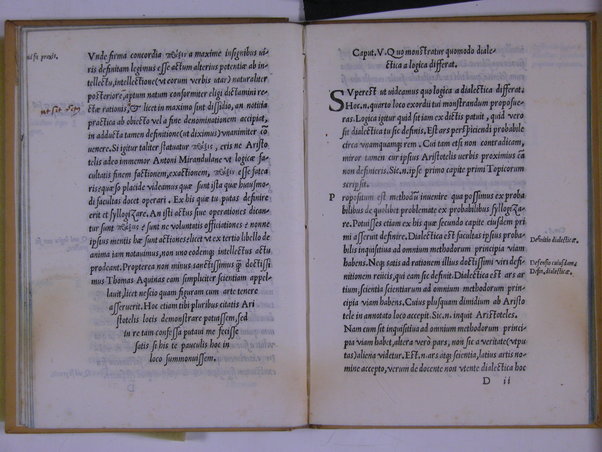 Vnde firma concordia πρᾶξιν a maxime insignibus ui-
ris definitam legimus esse actum alterius potentiæ ab in-
tellectu, intellectione (ut eorum verbis utar) naturaliter
posteriorē, aptum natum conformiter eligi dictamini re-
ctæ rationis, & licet in maximo sint dissidio, an notitia
practica ab obiecto vel a fine denominationem accipiat,
in adducta tamen definitione (ut diximus) vnanimiter cō
uenere. Si igitur taliter statuatur πρᾶξις, eris ne Aristo-
telis adeo immemor Antoni Mirandulane vt logicæ fa-
cultatis finem factionem, exactionem, πρᾶξιν esse fatea
risequæso placide videamus quæ sunt ista quæ huiusmo-
di facultas docet operari. Ex his quæ tu putas definire
erit et syllogizare. An isti actus siue operationes dican-
tur sunt πρᾶξεις e sunt ne voluntatis officiones e nonne
ipsius mentis hæ sunt actiones elicit vt ex tertio libello de
anima iam notauimus, non uno eodemq; intellectus actu
prodeant. Propterea non minus sanctissimus q̃ doctissi
mus Thomas Aquinas eam simpliciter scientiam appel-
lauit, licet nescio quam figuram cum arte tenere
asseruerit. Hoc etiam tibi pluribus citatis Ari
stotelis locis demonstrare potuissem, sed
in re tam confessa putaui me fecisse
satis si his te pauculis hoc in
loco summonuissem.
Caput. V. Quo monstratur quomodo diale-
ctica a logica differat.
SVperest ut uideamus quo logica a dialectica differat:
Hoc. n. quarto loco exorditi tui monstrandum proposue-
ras. Logica igitur quid sit iam ex dictis patuit, quid vero
sit dialectica tu sic definis. Est ars perspiciendi probabile
circa vnamquamq; rem. Cui tam etsi non contradicam,
miror tamen cur ipsius Aristotelis uerbis proximius eā
non definieris. Sic. n. ipse primo capite primi Topicorum
scripsit.
P ropositum est methodū inuenire qua possimus ex proba
bilibus de quolibet problemate ex probabilibus syllogiza-
re. Potuisses etiam ex his quæ secundo capite eiusdem pri
mi asserit definire. Dialectica est facultas ipsius probabi-
lis inquisitiua ad omnium methodorum principia viam
habens. Neq; satis ad rationem illius doctissimi viri defi-
nitionem reiicis, qui eam sic definit. Dialectica est ars ar
tium, scientia scientiarum ad omnium methodorum prin-
cipia viam habens. Cuius plusquam dimidium ab Aristo
tele in annotato loco accepit. Sic. n. inquit Aristoteles.
Nam cum sit inquisitiua ad omnium methodorum princi
pia viam habet, altera verō pars, non sic a veritate (vt pu
tas) aliena videtur. Est. n. ars utq; scientia, latius artis no-
mine accepto, verum de docente non vtente dialectica hoc
Definitio dialecticæ.
Defensio cuiusdam,
Defin. dialecticæ.
D ii